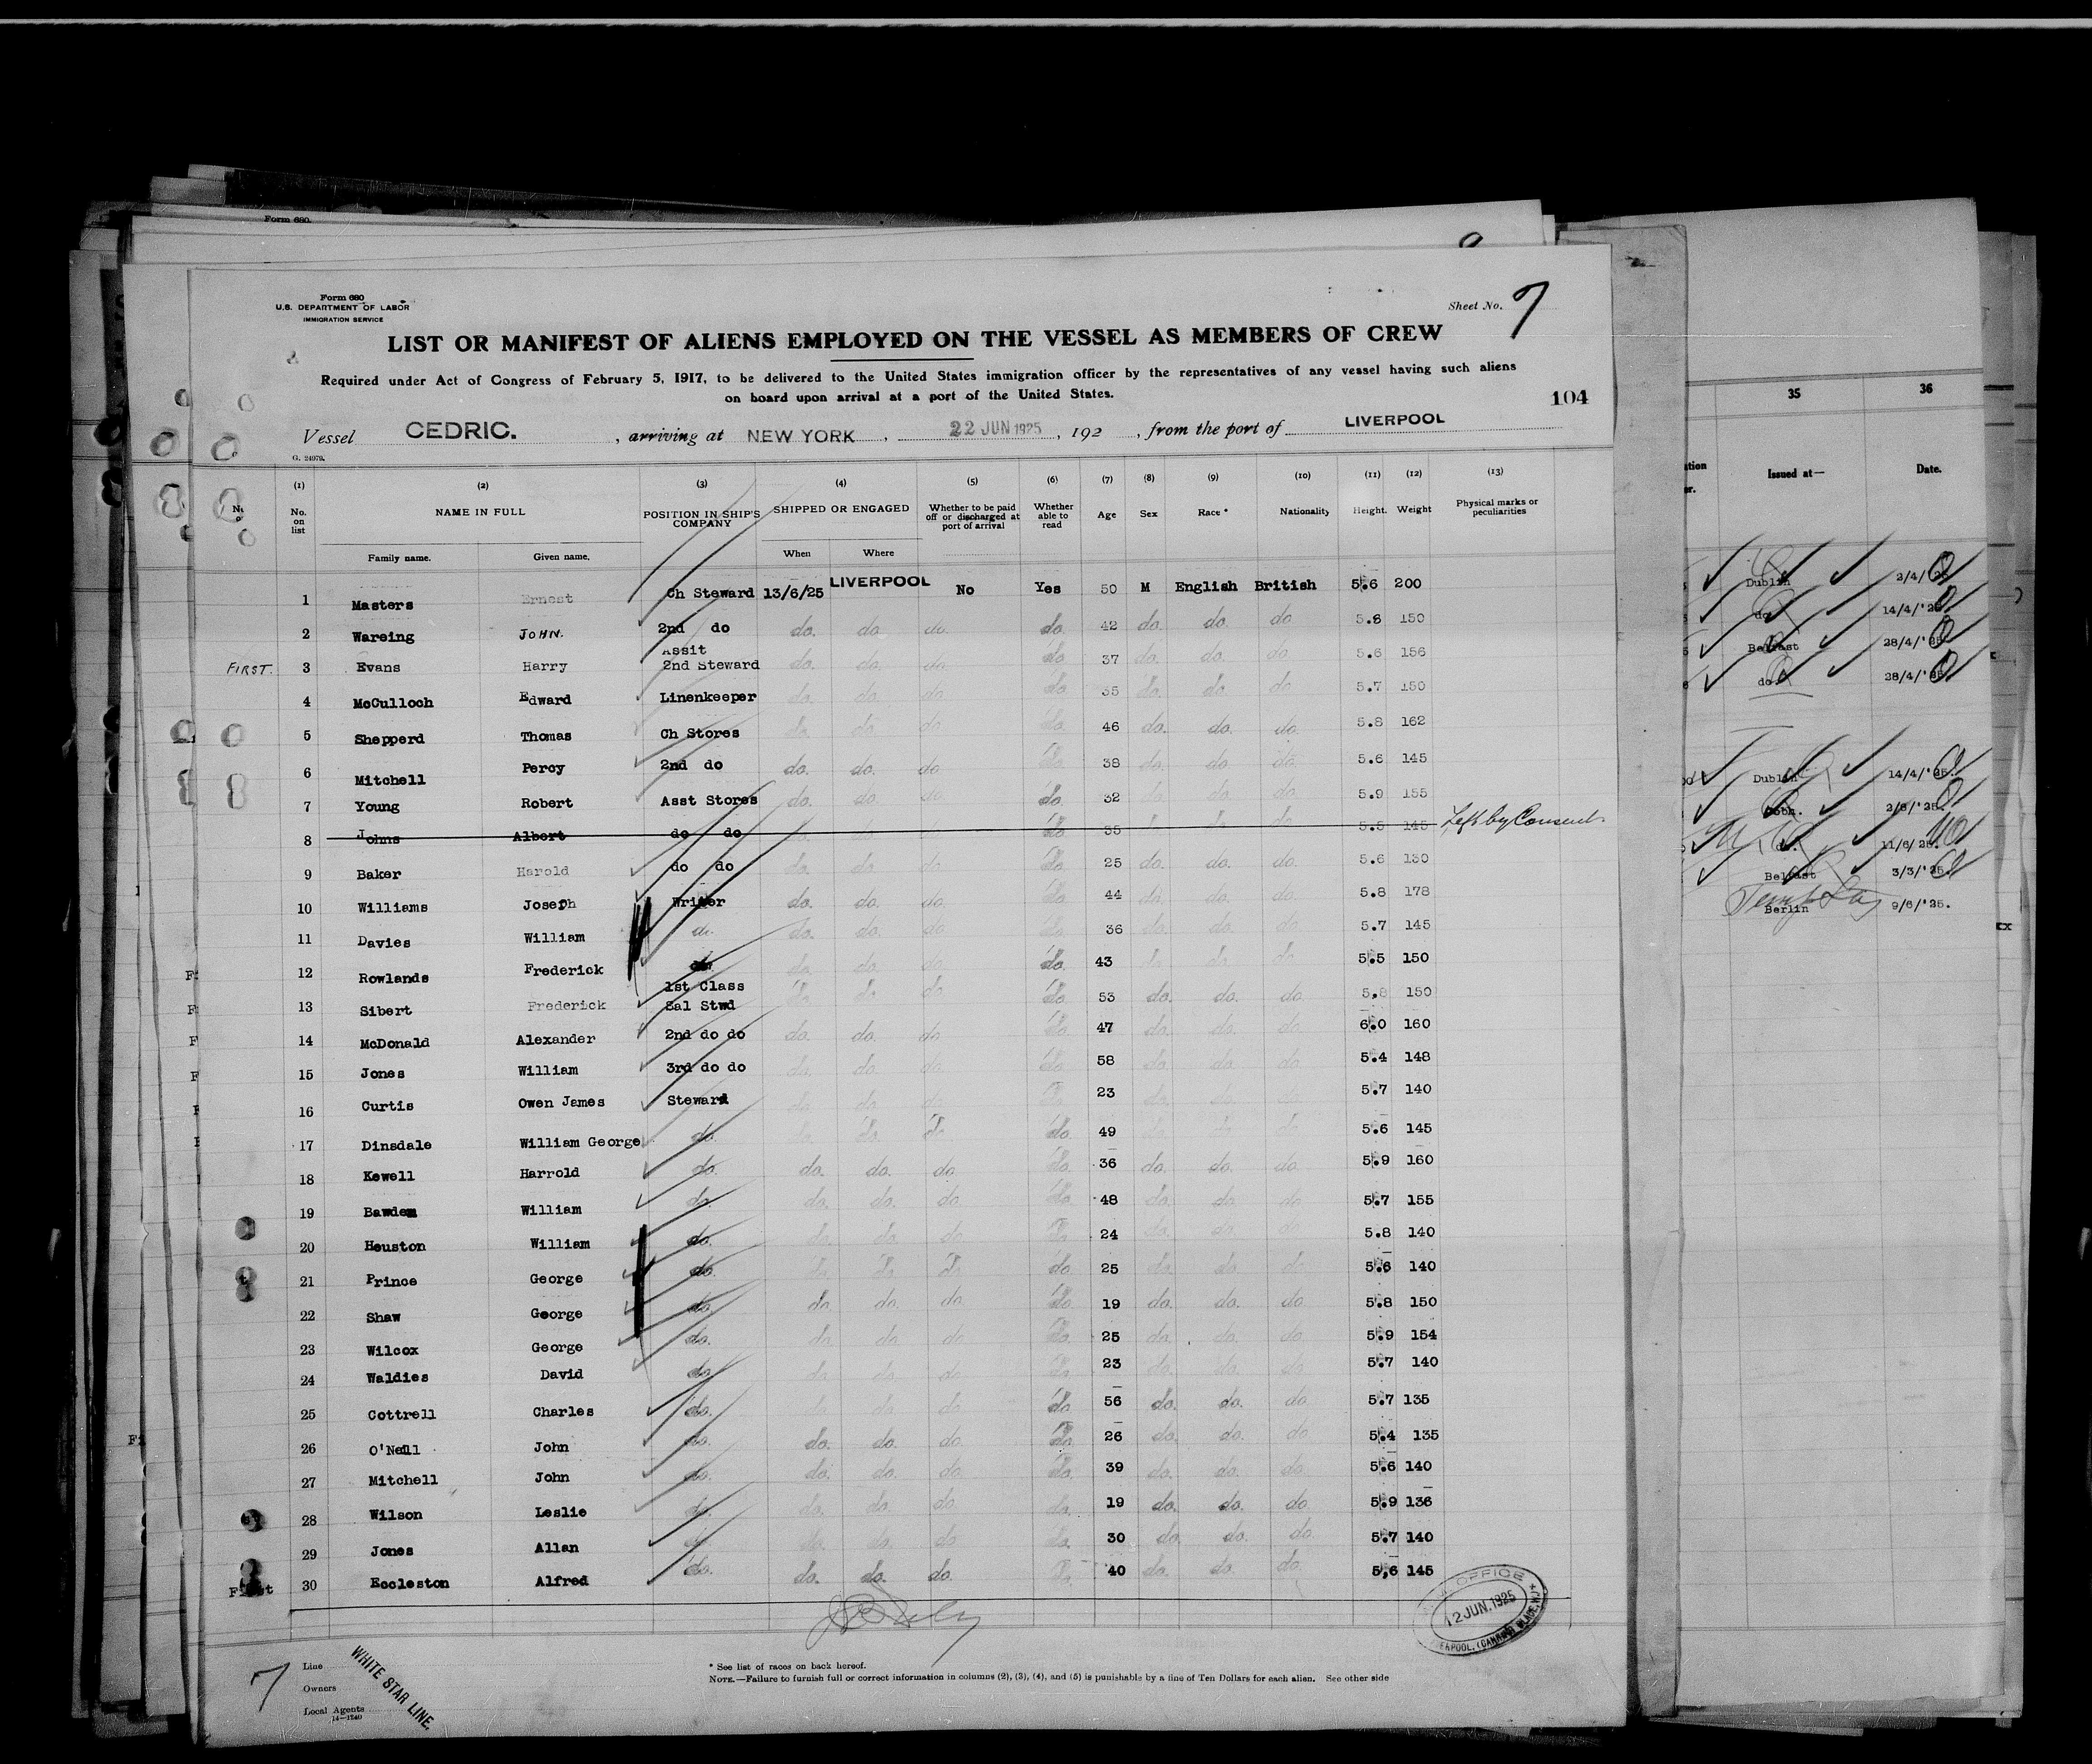 Form 680.
Form 680
U.S. DEPARTMENT OF LABOR
IMMIGRATION SERVICE
Sheet No. 7
LIST OR MANIFEST OF ALIENS EMPLOYED ON THE VESSEL AS MEMBERS OF CREW
Required under Act of Congress of February 5, 1917, to be delivered to the United States immigration officer by the representatives of any vessel having such aliens
on board upon arrival at a port of the United States.
104
Vessel CEDRIC. , arriving at NEW YORK , 22 JUN 1925 , 192 , from the port of LIVERPOOL
G. 24979.
(1) (2) (3) (4) (5) (6) (7) (8) (9) (10) (11) (12) (13)
No. on list NAME IN FULL POSITION IN SHIP'S COMPANY SHIPPED OR ENGAGED Whether to be paid off or discharged at port of arrival Whether able to read Age Sex Race * Nationality Height. Weight Physical marks or peculiarities
Family name. Given name. When Where
1 Masters Ernest Ch Steward 13/6/25 LIVERPOOL No Yes 50 M English British 5.6 200
2 Wareing JOHN. 2nd do do. do. do. do. 42 do. do. do 5.8 150
FIRST. 3 Evans Harry Assit 2nd Steward do. do. do. do 37 do. do. do 5.6 156
4 McCulloch Edward Linenkeeper do. do. do do 35 do. do. do 5.7 150
5 Shepperd Thomas Ch Stores do. do. do do. 46 do. do. do. 5.8 162
6 Mitchell Percy 2nd do do. do. do do. 38 do. do. do. 5.6 145
7 Young Robert Asst Stores do. do. do do. 32 do. do. do 5.9 155
8 Johns Albert do do do. 35 5.5 145 Left by Consent.
9 Baker Harold do do do. do. do do. 25 do. do. do. 5.6 130
10 Williams Joseph Writer do. do. do. do. 44 do. do. do. 5.8 178
11 Davies William do. do. do. do do. 36 do. do. do 5.7 145
12 Rowlands Frederick do. do. do. do do. 43 do. do. do 5.5 150
13 Sibert Frederick 1st Class Sal Stwd do. do do do. 53 do. do. do. 5.8 150
14 McDonald Alexander 2nd do do do. do. do do. 47 do. do. do 6.0 160
15 Jones William 3rd do do do. do. do. do. 58 do. do. do 5.4 148
16 Curtis Owen James Steward do. do. do do. 23 5.7 140
17 Dinsdale William George do. do. do. do. do. 49 do. do. do 5.6 145
18 Kewell Harrold do. do. do. do do. 36 do. do. do. 5.9 160
19 Bawden William do. do. do. do. do. 48 do. do. do 5.7 155
20 Heuston William do. do. do. do do. 24 do. do. do 5.8 140
21 Prince George do. do. do. do. do. 25 do. do. do. 5.6 140
22 Shaw George do. do. do. do do. 19 do. do. do. 5.8 150
23 Wilcox George do. do. do do do. 25 do. do. do. 5.9 154
24 Waldies David do. do. do. do do. 23 do. do. do 5.7 140
25 Cottrell Charles do. do. do. do do. 56 do. do. do 5.7 135
26 O'Neill John do. do. do. do do. 26 do. do. do 5.4 135
27 Mitchell John do. do. do. do. do. 39 do. do. do. 5.6 140
28 Wilson Leslie do. do. do. do do. 19 do. do. do. 5.9 136
29 Jones Allan do. do. do. do do. 30 do. do. do. 5.7 140
First 30 Eccleston Alfred do. do. do. do. do. 40 do. do. do. 5.6 145
OFFICE
12 JUN. 1925
* See list of races on back hereof.
NOTE.—Failure to furnish full or correct information in columns (2), (3), (4), and (5) is punishable by a fine of Ten Dollars for each alien. See other side
7
Line
Owners
Local Agents
14—1240
WHITE STAR LINE.
35 36
Issued at— Date.
Dublin 2/4/'25.
do. 14/4/'25
Belfast 28/4/'25
do. 28/4/'25
Dublin 14/4/'25.
Cobh.
do. 11/6/'25.
Belfast 3/3/'25.
Berlin 9/6/'25.